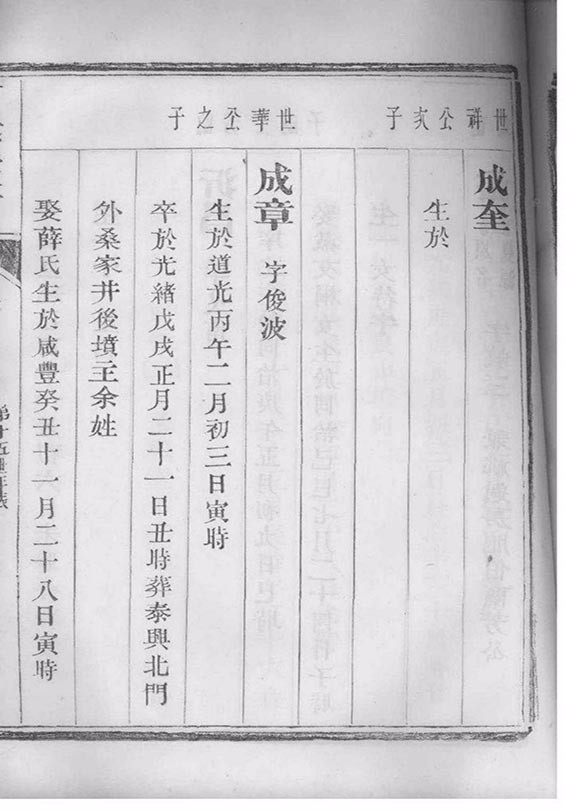 世祥公次子
成奎
生於
世華公之子
成章 字俊波
生於道光丙午二月初三日寅時
卒於光緒戊戌正月二十一日丑時葬泰興北門
外桑家井後墳主余姓
娶薛氏生於咸豐癸丑十一月二十八日寅時
第十五世年表